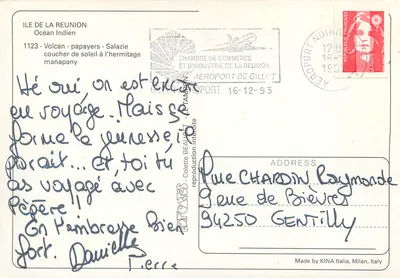 ILE DE LA REUNION
Océan Indien
1123 - Volcan - papayers - Salazie
coucher de soleil à l'hermitage
manapany
CHAMBRE DE COMMERCE
ET D'INDUSTRIE DE LA REUNION
AEROPORT DE GILLOT
PORT 16-12-93
Hé oui, on est encore
en voyage. Mais ça
forme la jeunesse, il
paraît... et toi tu
as voyagé avec
Pépère !!
En t'embrasse bien
fort. Danielle
Pierre
Colette BEAU
reproduction interdite
ADDRESS
Mme CHARDIN Raymonde
9 rue de Bièvres
94250 GENTILLY
Made by KINA Italia, Milan, Italy